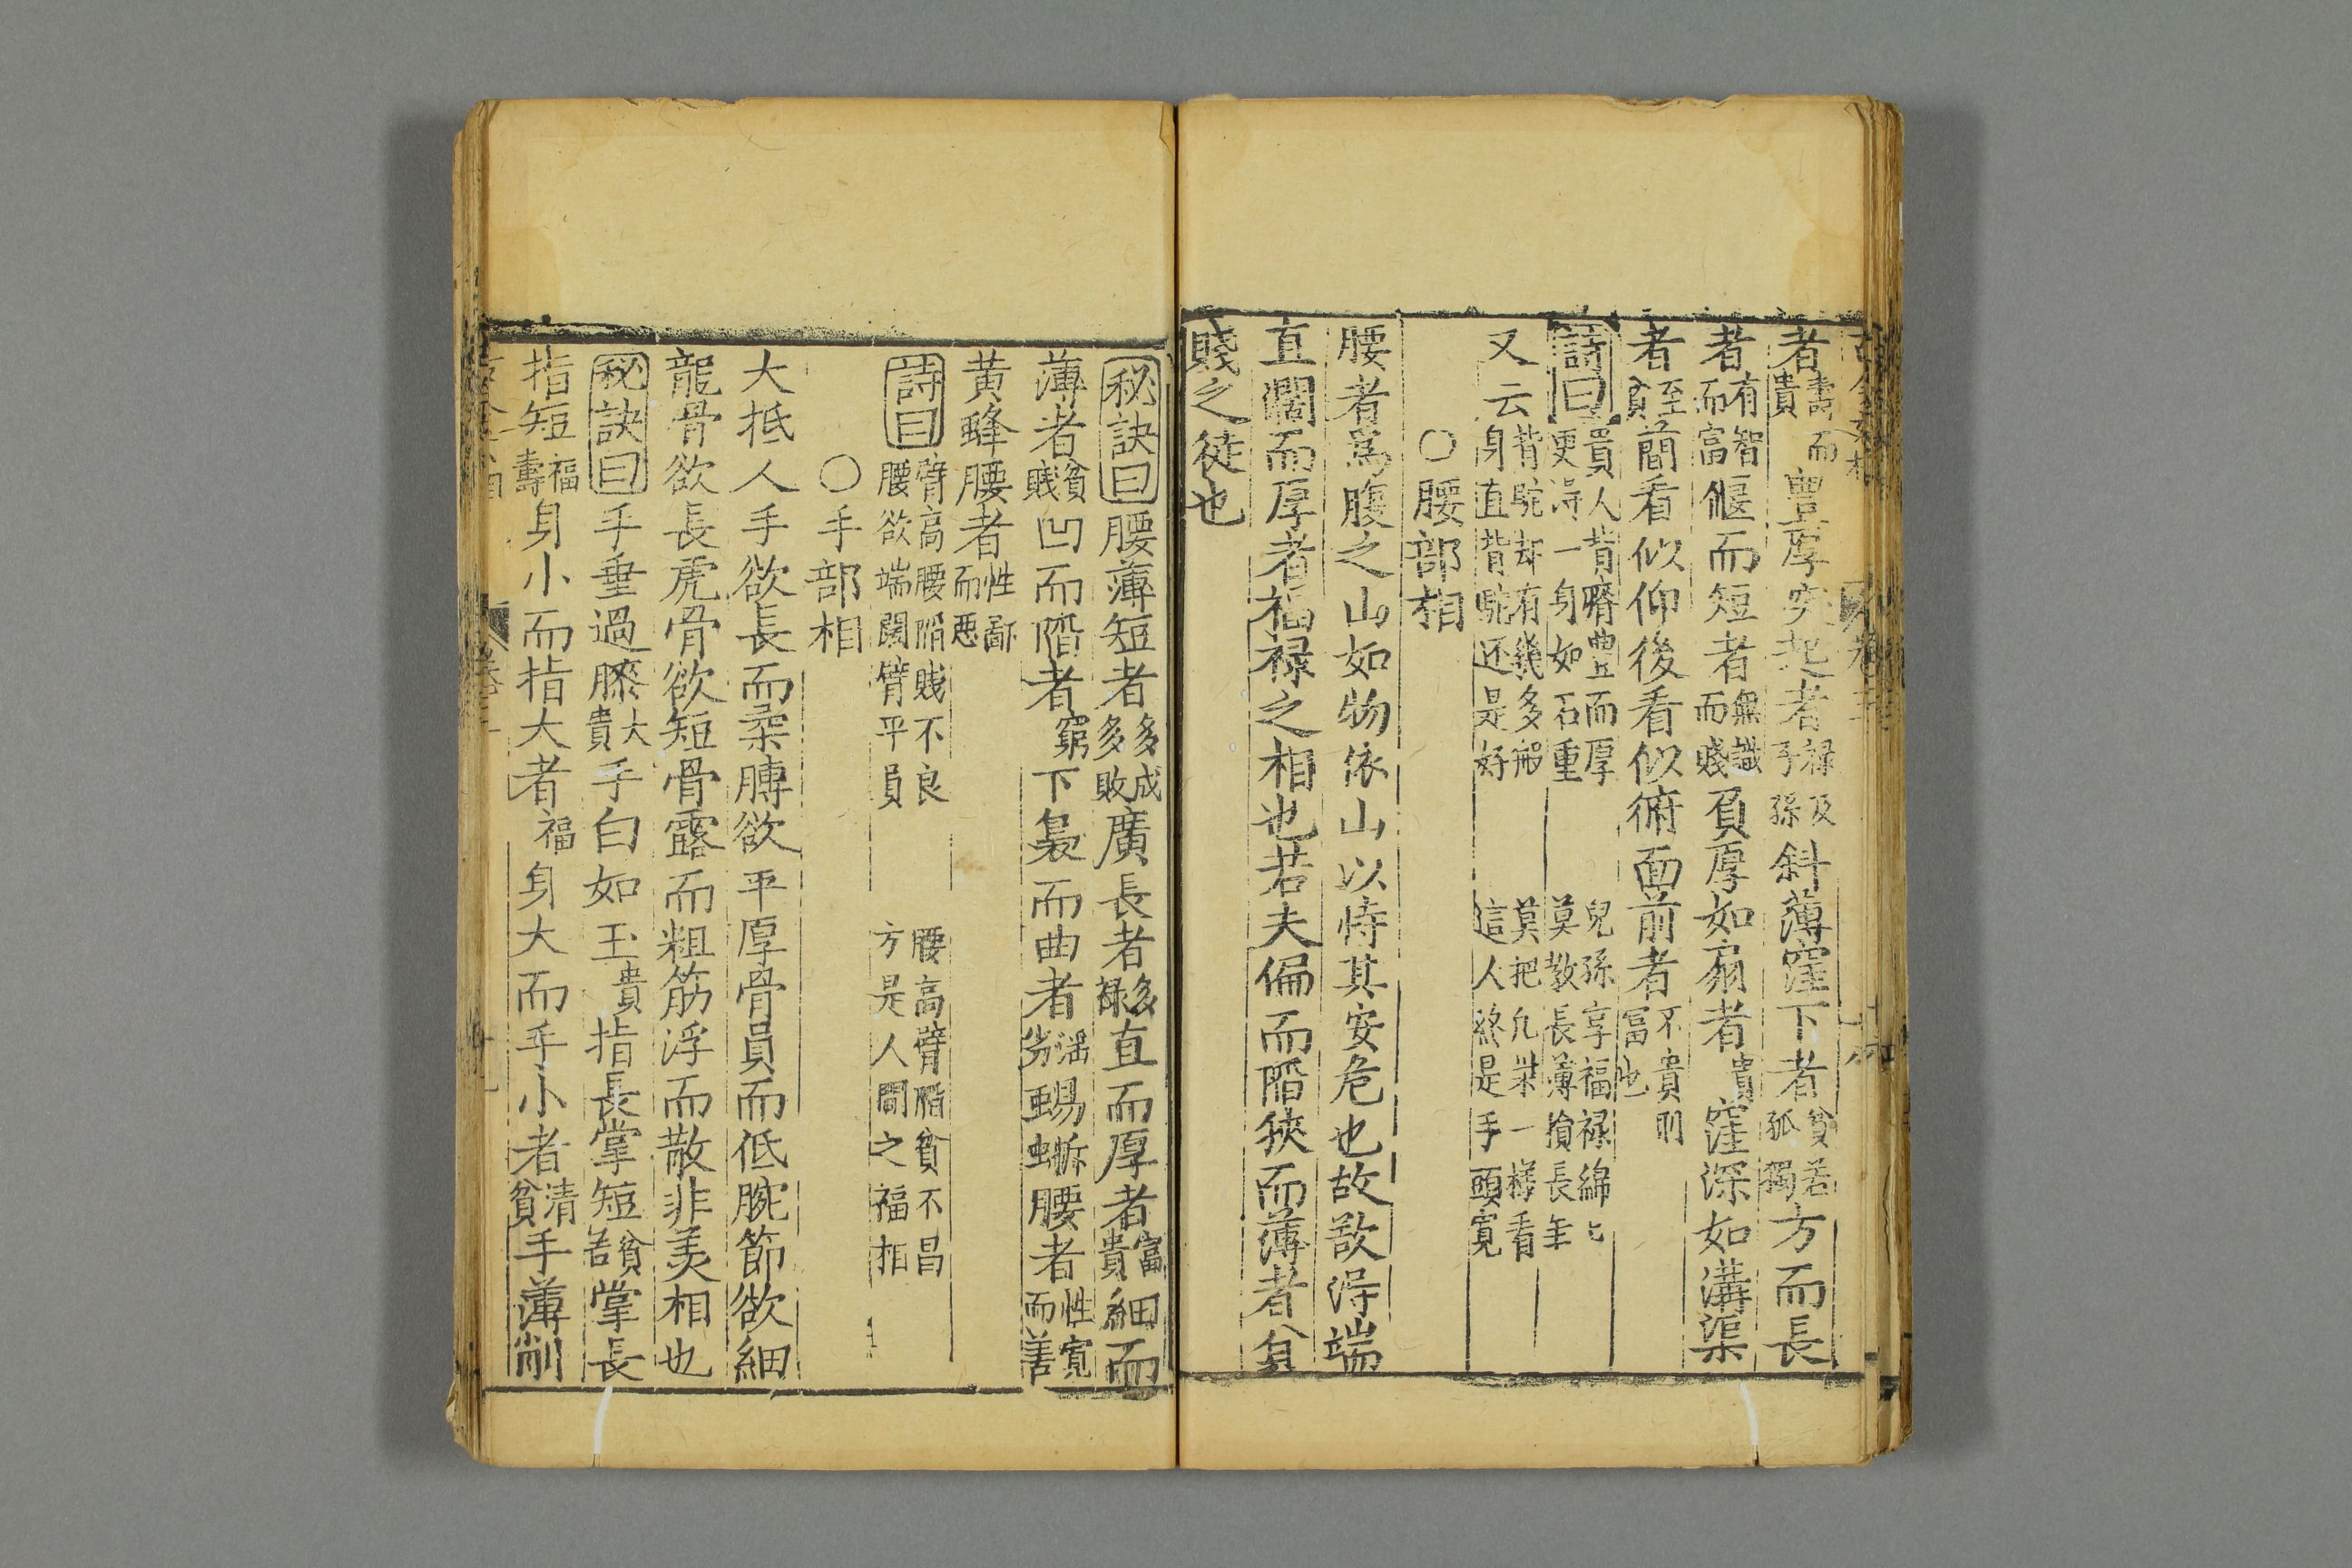 者壽而貴豐厚突起者祿及子孫斜薄窪下者貧若孤獨方而長
者有智而富偃而短者無識而賤頁厚如扇者貴窪深如溝渠
者至貧前看似仰後看似俯面前者不貴則富也
詩曰貴人背脊豊而厚 兒孫享福祿綿〻 更淂一身如石重 莫教長薄損長年
又云背駝却有幾多般 莫把凢桒一樣看 身直背駝还是好 這人終是手頭寬
〇腰部相
腰者爲腹之山如物依山以恃其安危也故欲淂端
直濶而厚者福祿之相也若夫偏而陷狹而薄者貧
賤之徒也
秘訣曰腰薄短者多成多敗廣長者多祿直而厚者富貴細而
薄者貧賤凹而陷者窮下裊而曲者滛劣蜴蜥腰者性寬而善
黄蜂腰者性鄙而惡
詩曰臂高腰陷賎不良 腰高臂陷貧不昌 腰欲端闊臂平員 方是人間之福相
〇手部相
大抵人手欲長而柔膊欲平厚骨員而低腕節欲細
龍骨欲長虎骨欲短骨露而粗筋浮而散非美相也
秘訣曰手垂過膝大貴手白如玉貴指長掌短貧苦掌長
指短福壽身小而指大者福身大而手小者清貧手薄削